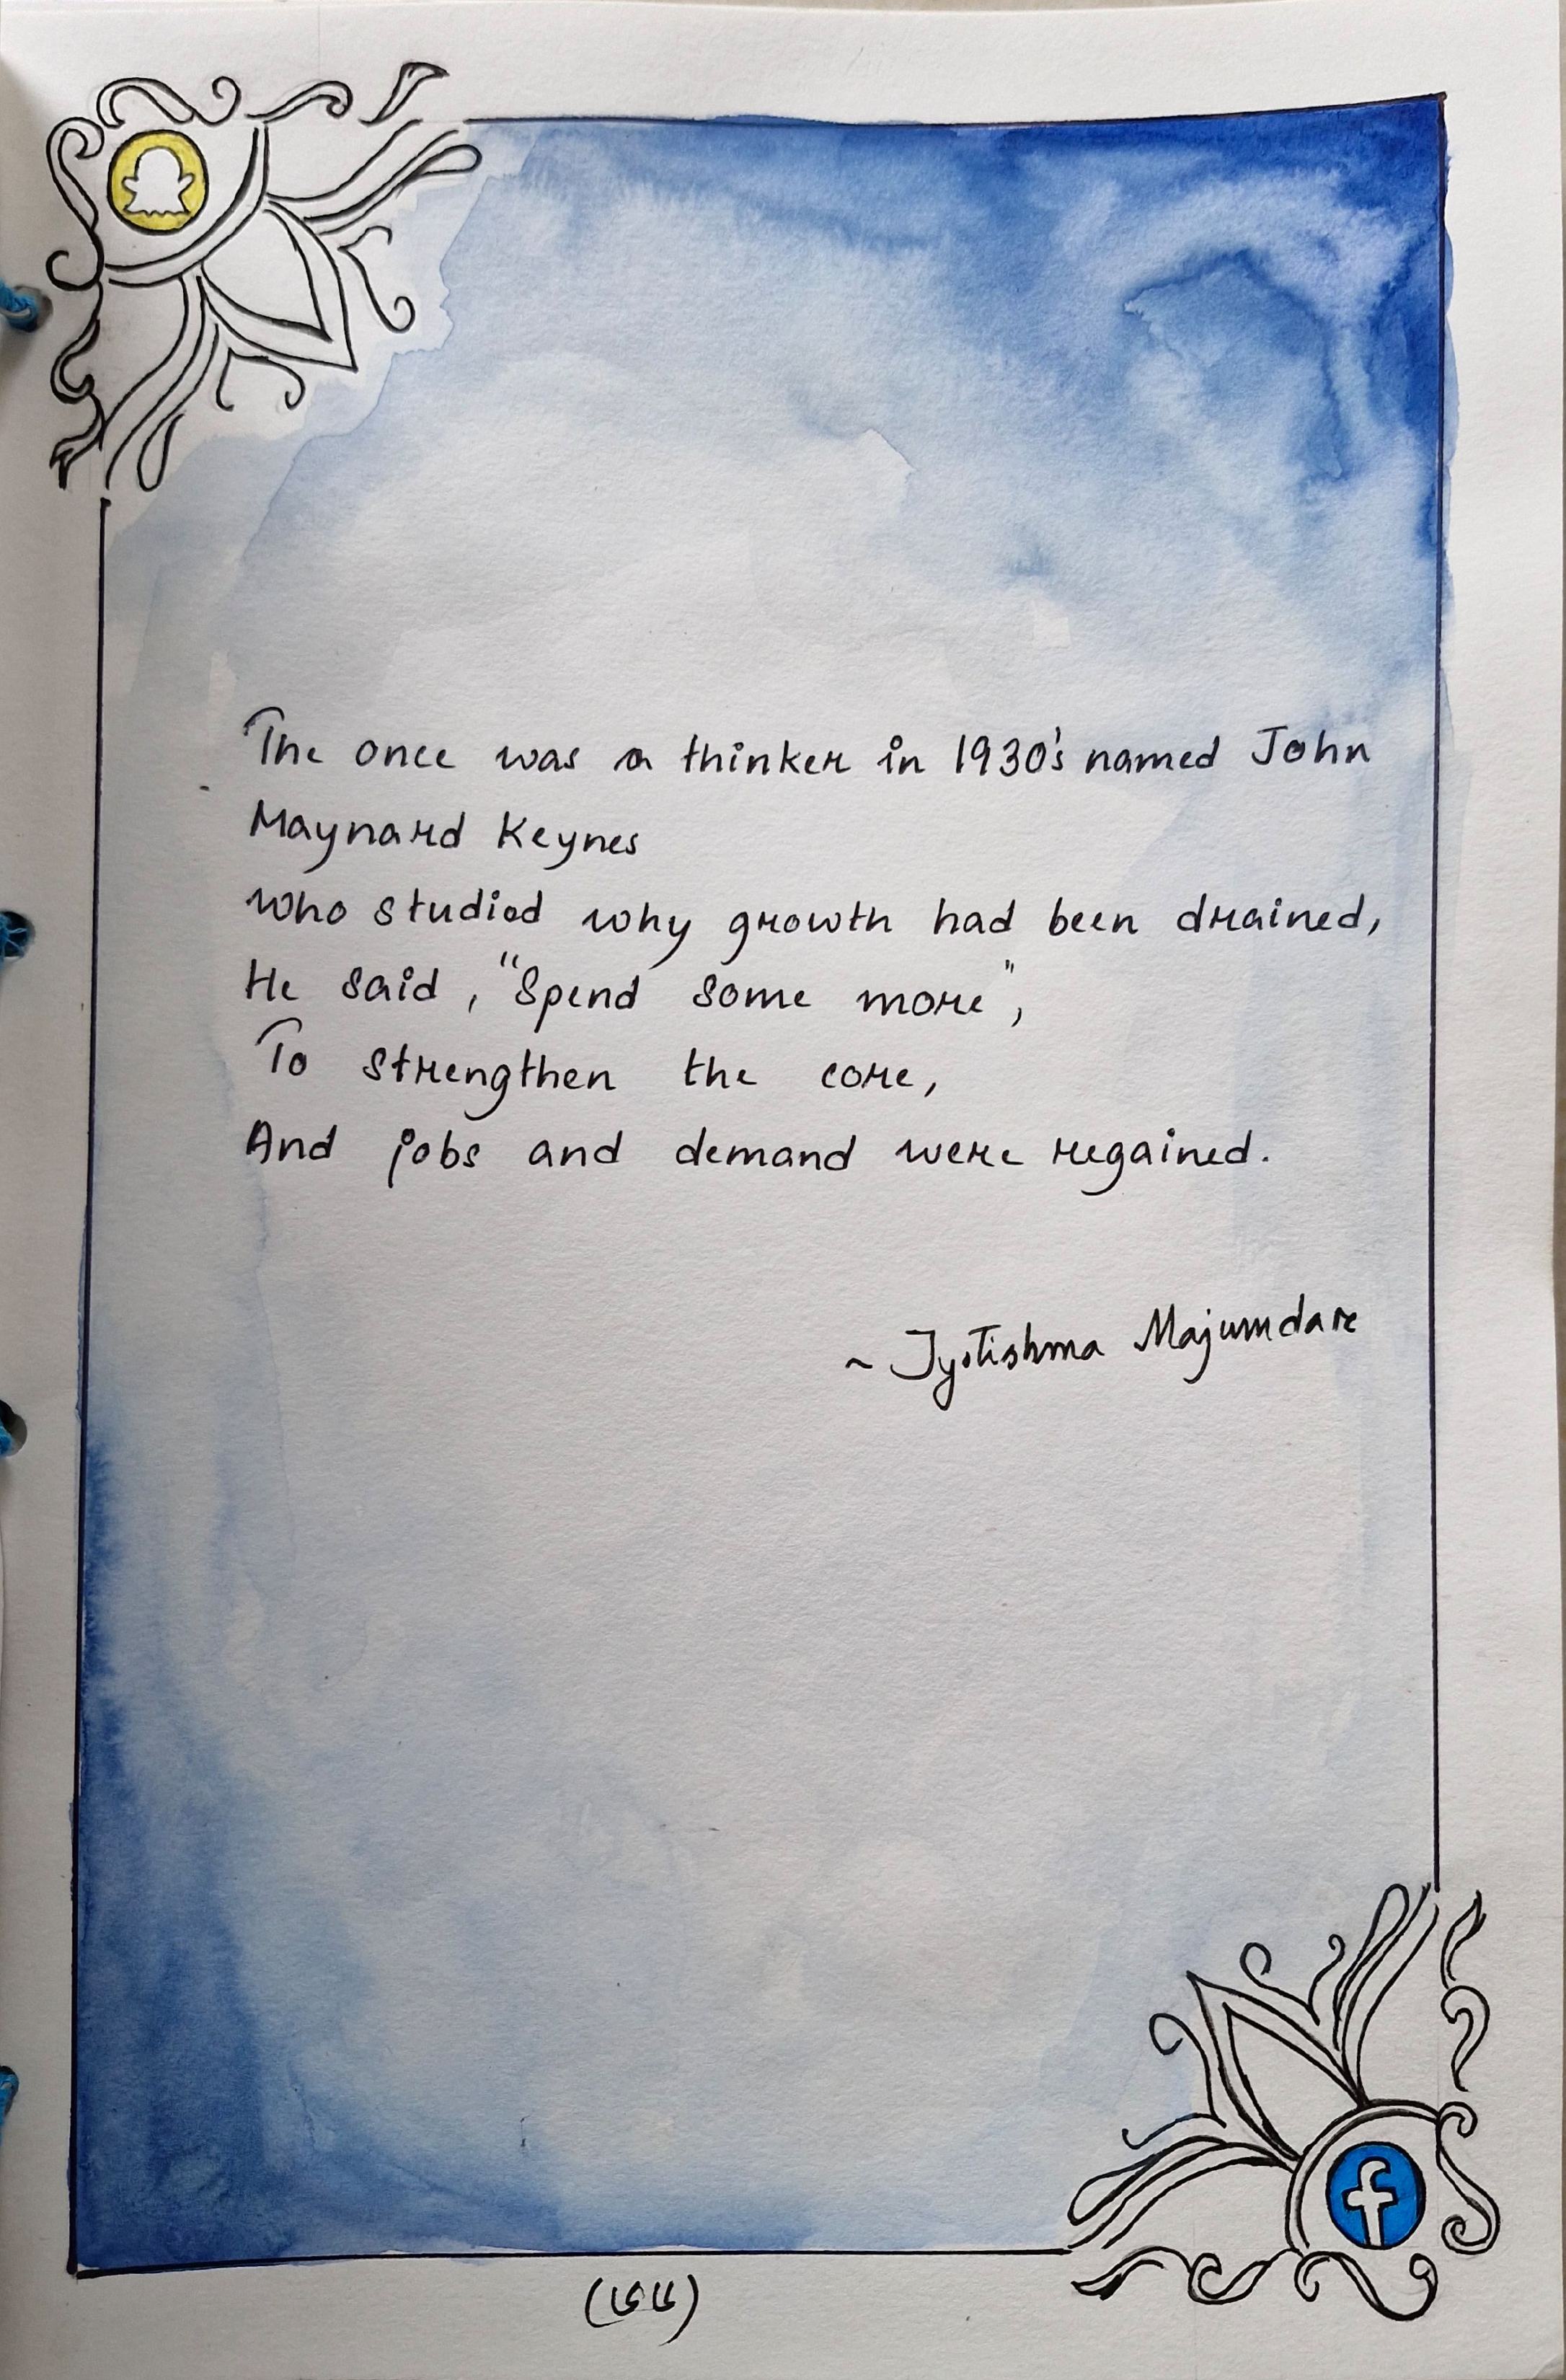 The once was a thinker in 1930's named John
Maynard Keynes
who studied why growth had been drained,
He said, "Spend some more",
To strengthen the core,
And jobs and demand were regained.
~ Jyotishma Majumdar
(৬৬)